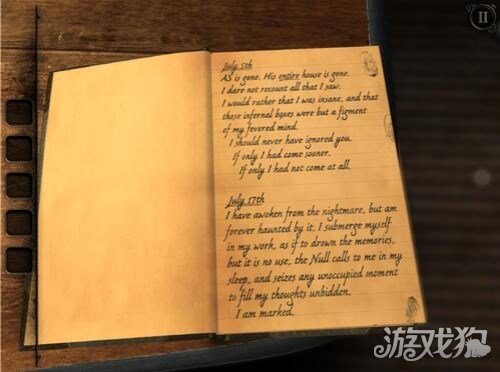 II
July 5th
AS is gone. His entire house is gone.
I dare not recount all that I saw.
I would rather that I was insane, and that
those infernal boxes were but a figment
of my fevered mind.
I should never have ignored you.
If only I had come sooner.
If only I had not come at all.
July 17th
I have awoken from the nightmare, but am
forever haunted by it. I submerge myself
in my work, as if to drown the memories,
but it is no use, the Null calls to me in my
sleep, and seizes any unoccupied moment
to fill my thoughts unbidden.
I am marked.
游戏狗